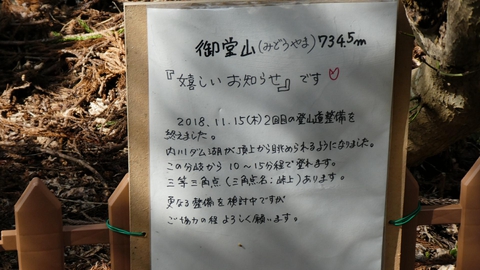 御堂山(みどうやま)734.5m
『嬉しいお知らせ』です♡
2018.11.15(木)2回目の登山道整備を
終えました。
内川ダム湖が頂上から眺められるようになりました。
この分岐から10〜15分程で登れます。
三等三角点(三角点名:峠上)あります。
更なる整備を検討中ですが
ご協力の程よろしく願います。